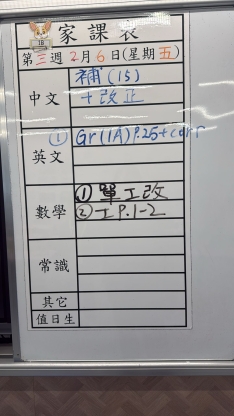 家課表
第三週2月6日(星期五)
中文 補(15)
+改正
英文 ① Gr(1A) P.25+corr
數學 ① 單工改
② 工P.1-2
常識
其它
值日生